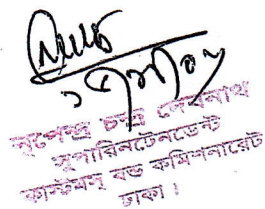 নৃপেন্দ্র চন্দ্র দেবনাথ
সুপারিনটেনডেন্ট
কাস্টমস্ বন্ড কমিশনারেট
ঢাকা।